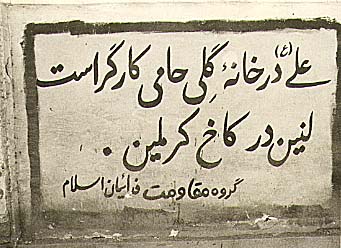 علی (ع) در خانهٔ گِلی حامی کارگر است
لنین در کاخ کرملین .
گروه مقاومت فدائیان اسلام